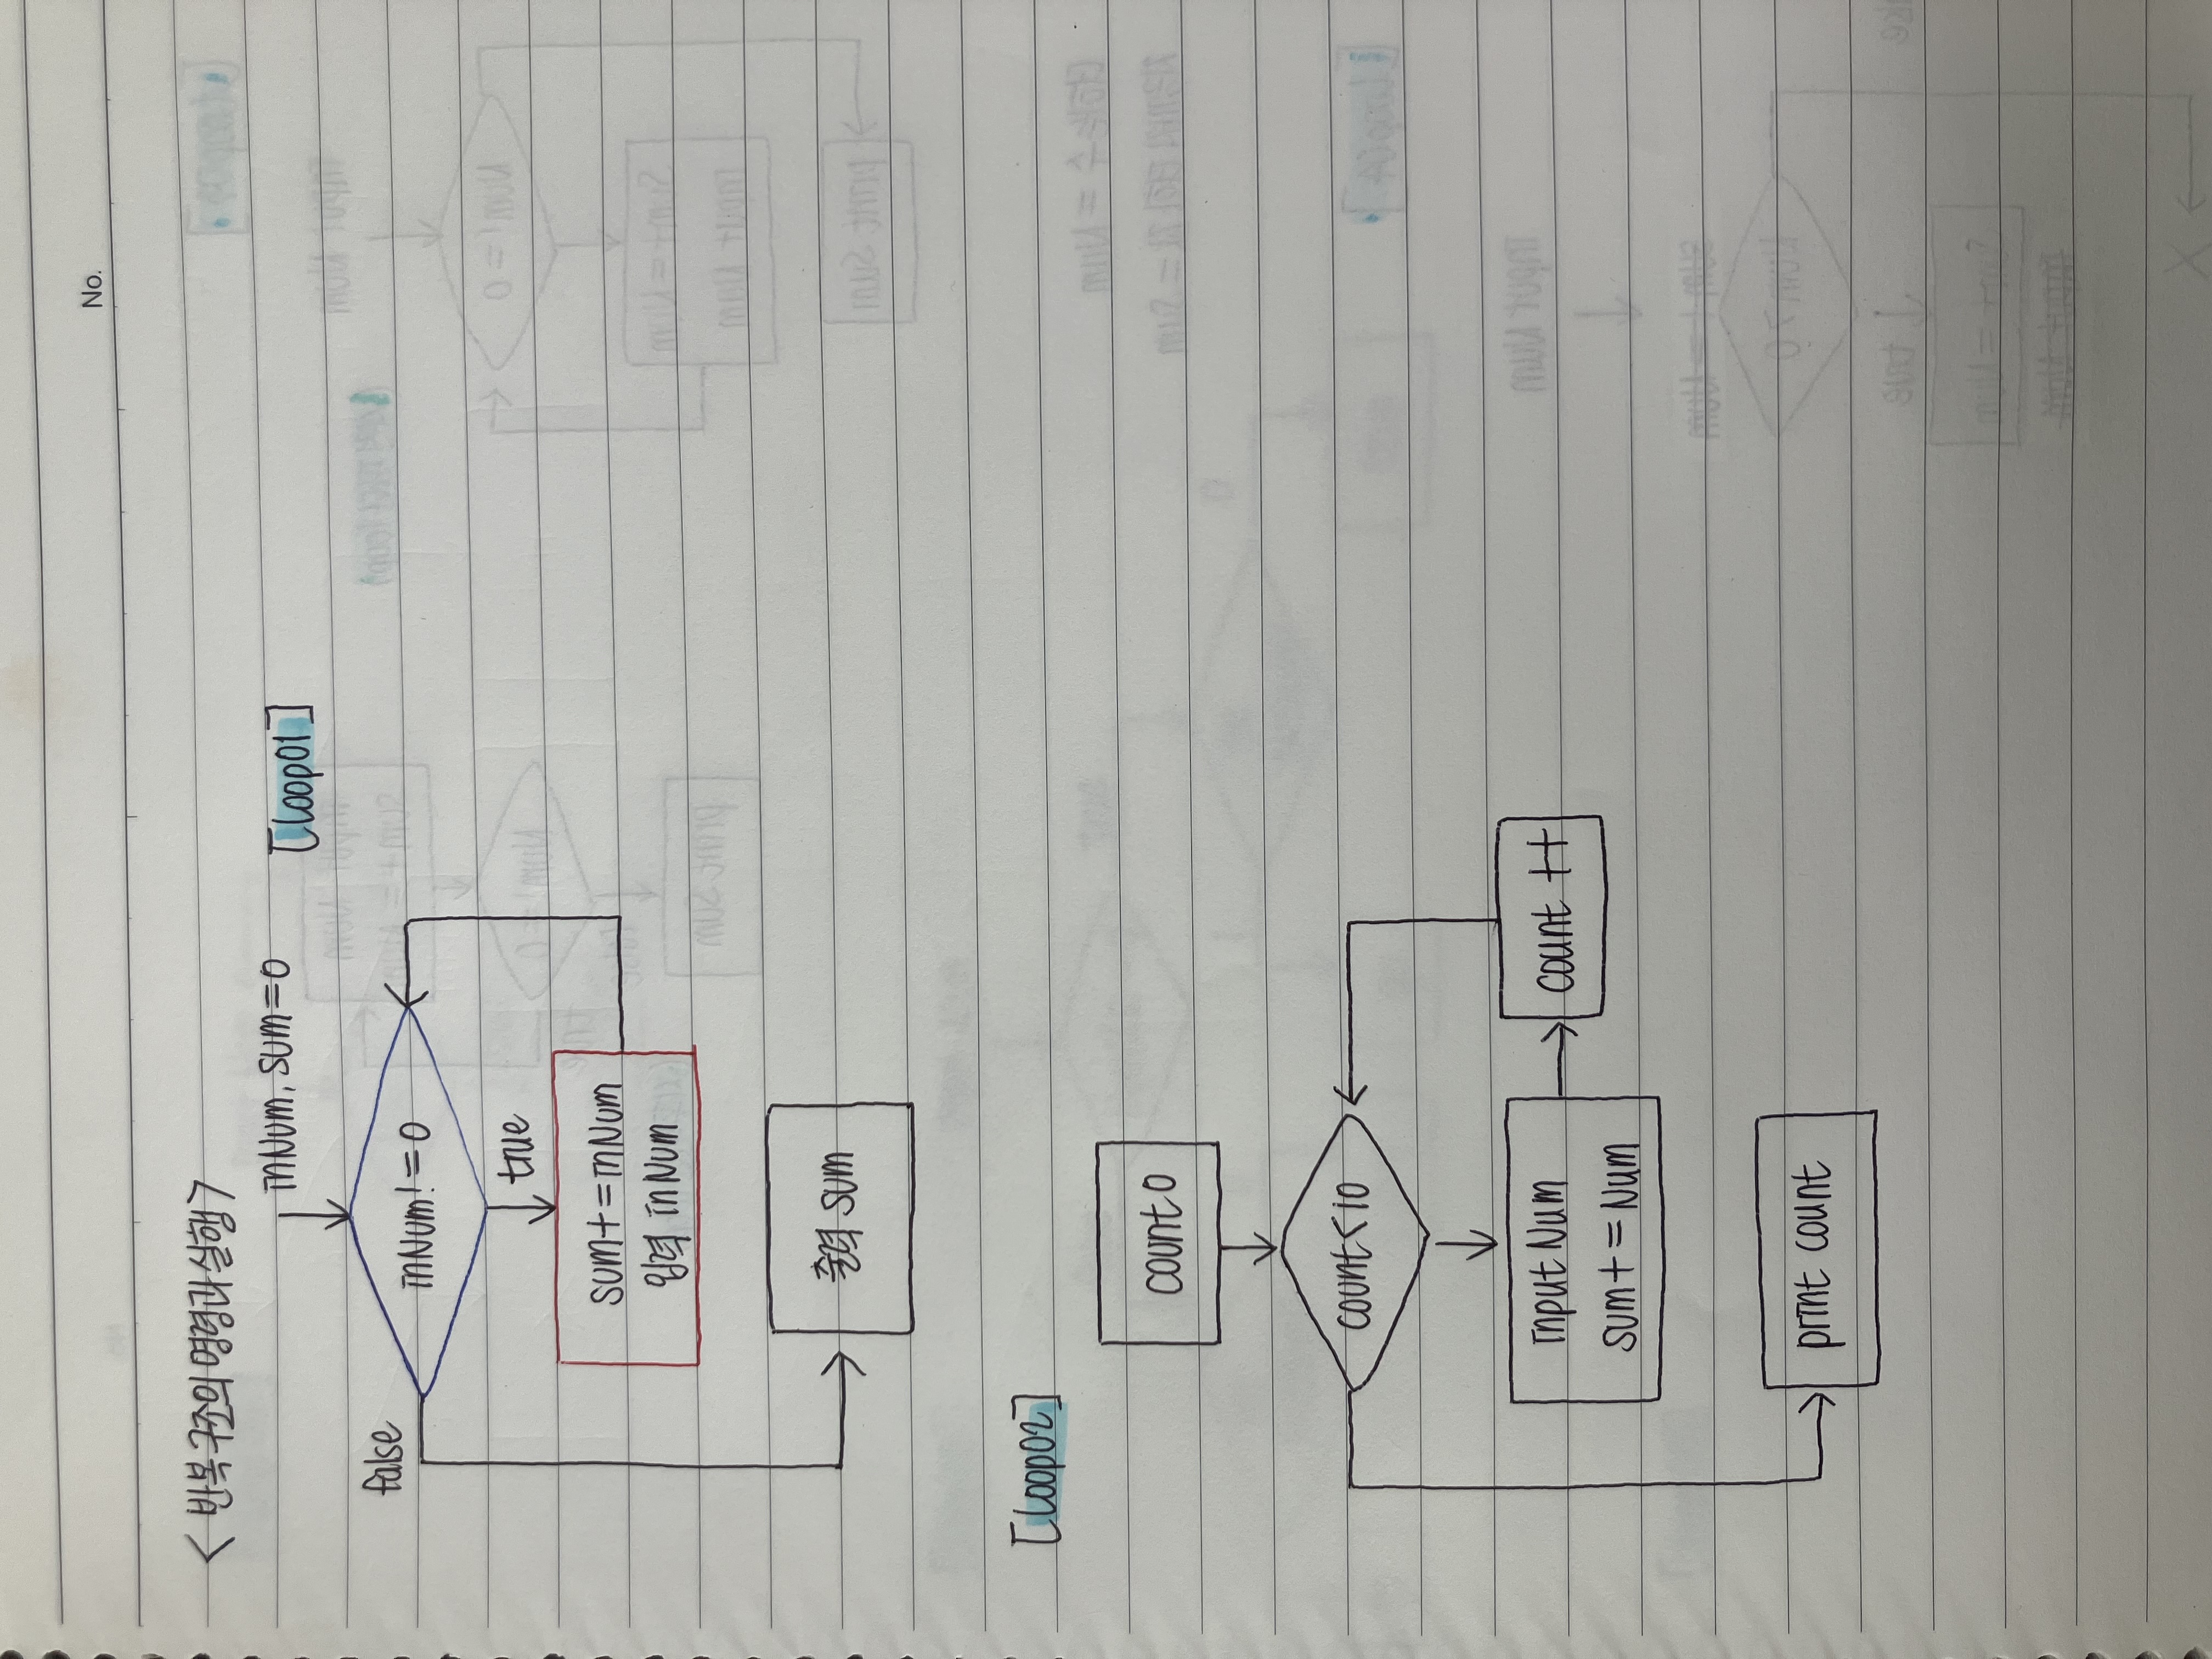 No.
< 반복 구조의 명령과 실행 >
inNum, sum=0
[Loop01]
false
inNum! = 0
true
sum+=inNum
입력 inNum
출력 sum
[Loop02]
count 0
count<10
input Num
sum+=Num
count ++
print count